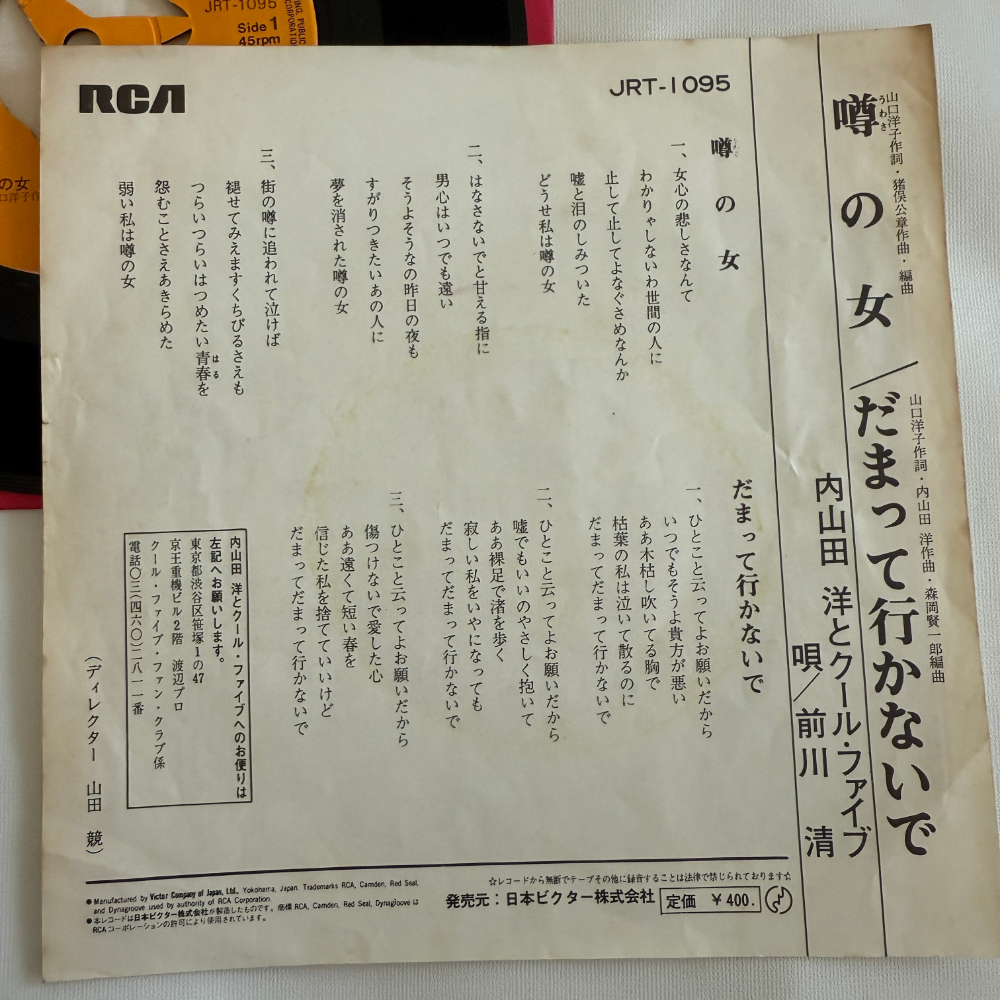 JRT-1095
Side 1
45rpm
の女
RCA
JRT-1095
山口洋子作詞・猪俣公章作曲・編曲
噂の女/だまって行かないで
うわき
山口洋子作詞・内山田 洋作曲・森岡賢一郎編曲
内山田 洋とクール・ファイブ
唄/前川 清
噂の女
一、女心の悲しさなんて
わかりゃしないわ世間の人に
止して止してよなぐさめなんか
嘘と泪のしみついた
どうせ私は噂の女
二、はなさないでと甘える指に
男心はいつでも遠い
そうよそうなの昨日の夜も
すがりつきたいあの人に
夢を消された噂の女
三、街の噂に追われて泣けば
褪せてみえますくちびるさえも
つらいつらいはつめたい青春を
はる
怨むことさえあきらめた
弱い私は噂の女
だまって行かないで
一、ひとこと云ってよお願いだから
いつでもそうよ貴方が悪い
ああ木枯し吹いてる胸で
枯葉の私は泣いて散るのに
だまってだまって行かないで
二、ひとこと云ってよお願いだから
嘘でもいいのやさしく抱いて
ああ裸足で渚を歩く
寂しい私をいやになっても
だまってだまって行かないで
三、ひとこと云ってよお願いだから
傷つけないで愛した心
ああ遠くて短い春を
信じた私を捨てていいけど
だまってだまって行かないで
内山田 洋とクール・ファイブへのお便りは
左記へお願いします。
東京都渋谷区笹塚1の47
京王重機ビル2階 渡辺プロ
クール・ファイブ・ファン・クラブ係
電話〇三(四六〇)二八一一番
(ディレクター 山田 競)
●Manufactured by Victor Company of Japan, Ltd., Yokohama, Japan. Trademarks RCA, Camden, Red Seal,
and Dynagroove used by authority of RCA Corporation.
●本レコードは日本ビクター株式会社が製造したものです。商標RCA, Camden, Red Seal, Dynagloove は
RCAコーポレーションの許可により使用されています。
☆レコードから無断でテープその他に録音することは法律で禁じられております☆
発売元:日本ビクター株式会社 定価 ¥400.